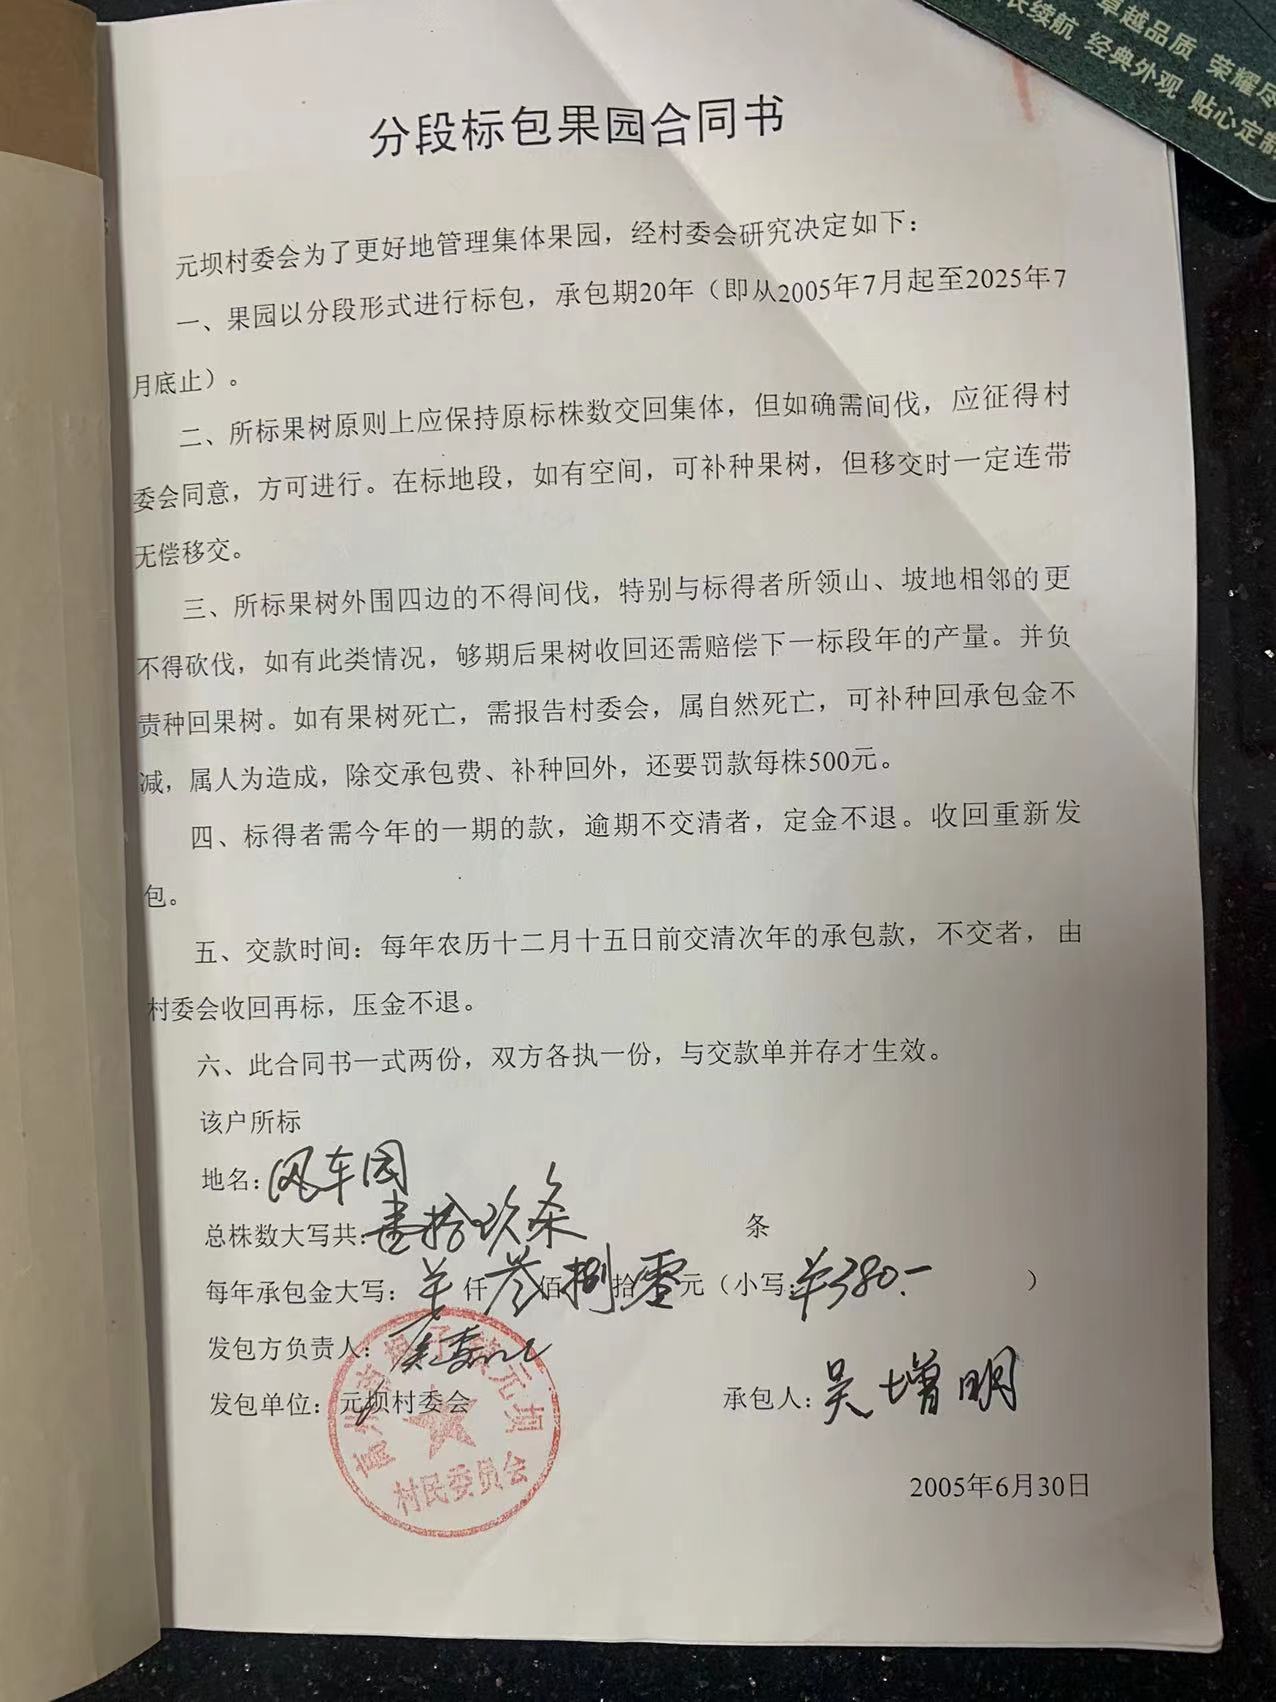 卓越品质 荣耀尽
长续航 经典外观 贴心定制
分段标包果园合同书
元坝村委会为了更好地管理集体果园，经村委会研究决定如下：
一、果园以分段形式进行标包，承包期20年（即从2005年7月起至2025年7
月底止）。
二、所标果树原则上应保持原标株数交回集体，但如确需间伐，应征得村
委会同意，方可进行。在标地段，如有空间，可补种果树，但移交时一定连带
无偿移交。
三、所标果树外围四边的不得间伐，特别与标得者所领山、坡地相邻的更
不得砍伐，如有此类情况，够期后果树收回还需赔偿下一标段年的产量。并负
责种回果树。如有果树死亡，需报告村委会，属自然死亡，可补种回承包金不
减，属人为造成，除交承包费、补种回外，还要罚款每株500元。
四、标得者需今年的一期的款，逾期不交清者，定金不退。收回重新发
包。
五、交款时间：每年农历十二月十五日前交清次年的承包款，不交者，由
村委会收回再标，压金不退。
六、此合同书一式两份，双方各执一份，与交款单并存才生效。
该户所标
地名：风车园
总株数大写共：壹拾玖条 条
每年承包金大写：羊仟叁佰捌拾零元（小写：羊380.一 ）
发包方负责人：
发包单位：元坝村委会 承包人：吴增明
高州市 镇元坝
村民委员会
2005年6月30日